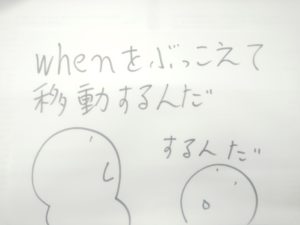 whenをぶっこえて
移動するんだ
するんだ